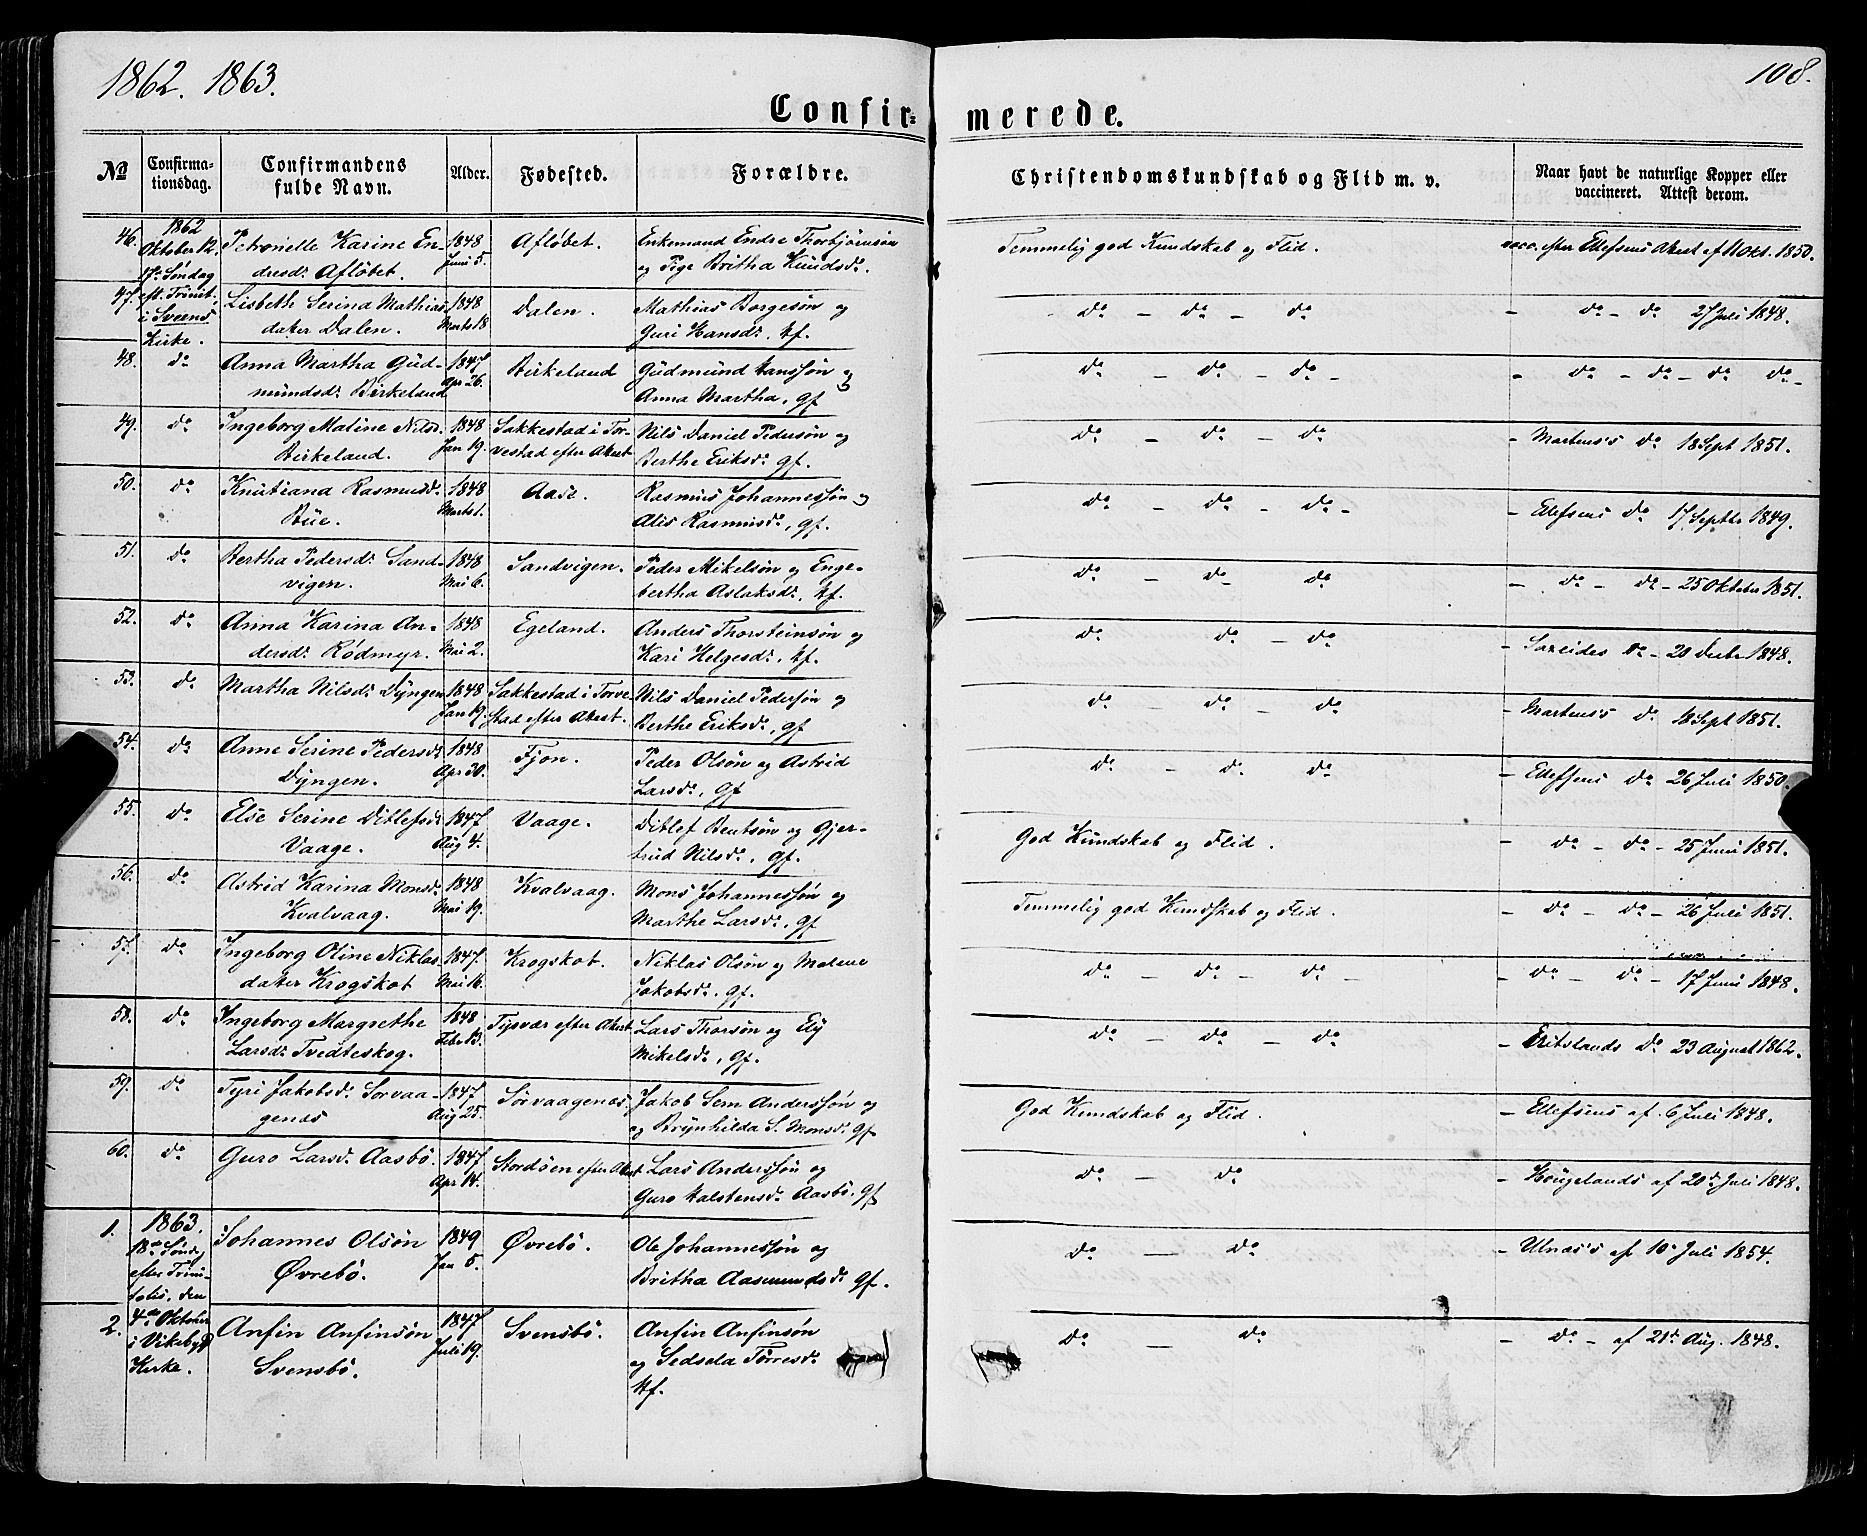 1862. 1863.
108.
Confirmerede.
No
Confirmationsdag.
Confirmandens fulde Navn.
Alder.
Fødested.
Forældre.
Christendomskundskab og Flid m. v.
Naar havt de naturlige Kopper eller vaccineret. Attest derom.
46. 1862 Oktober 12. Petronelle Karine En- 1848 Afløbet. Enkemand Endre Thorbjörnsön Temmelig god Kundskab og Flid. vacc. efter Ellefsens Atest af 11 Okt. 1850.
17de Søndag dresdr Afløbet. Juni 5. og Pige Britha Knudsdr.
47. eft. Trinit. Lisbeth Serina Mathias 1848 Dalen. Mathias Borgesön og do - do - do - do - do 27 Juli 1848.
i Sveens Kirke. dater Dalen. Marts 18 Guri Hansdr. kf.
48. do Anna Martha Gud- 1847 Birkeland Gudmund Hanssön og do - do - do - - do - do - do do -
mundsdr Birkeland Apr 26. Anna Martha, gf
49. do Ingeborg Maline Nilsd. 1848 Sakkestad i Tor- Nils Daniel Pedersön og do - do - do - Martens's do 18 Sept 1851.
Birkeland. Jan 19. vestad efter Atest Berthe Eriksdr. gf.
50. do Knutiana Rasmusdr 1848 Aase. Rasmus Johannessön og do - do - do - - Ellefsens do 17 Septbr 1849.
Büe. Marts 1. Alis Rasmusdr, gf.
51. do Bertha Pedersdr Sand- 1848 Sandvigen. Peder Mikelsön og Enge- do - do do - do - do - 25 Oktober 1851.
vigen. Mai 6. bertha Aslaksdr, kf.
52. do Anna Karina An- 1848 Egeland. Anders Thorsteinsön og do do - do - do - 20 Decbr 1848.
dersdr Rödmyr. Mai 2. Kari Helgesdr, kf.
53. do Martha Nilsdr Dyngen 1848 Sakkestad i Torve- Nils Daniel Pedersön og do - do - do - Martens's do 18 Sept 1851.
Jan 19. stad efter Atest. Berthe Eriksdr, gf
54. do Anne Serine Pedersdr 1848 Fjon. Peder Olsön og Astrid do - do. do - Ellefsens do 26 Juli 1850.
Dyngen. Apr 30. Larsdr, gf
55. do Else Serine Ditlefsdr 1847 Vaage. Ditlef Bentsön og Gjer- God Kundskab og Flid. - do - do - 25 Juni 1851.
Vaage. Aug 4. trud Nilsdr, gf.
56. do Astrid Karina Monsdr 1848 Kvalvaag. Mons Johannessön og Temmelig god Kundskab og Flid. - do - do - 26 Juli 1851.
Kvalvaag. Mai 19. Marthe Larsdr, gf
57. do Ingeborg Oline Niklas 1847. Krogskot. Niklas Olsön og Malene do - do - do - - do - do - 17 Juni 1848.
dater Krogskot Mai 16. Jakobsdr, gf.
58. do Ingeborg Margrethe 1848 Tysvær efter Atest Lars Thorsön og Ely do - do - do - do 23 August 1862.
Larsdr Tvedteskog. Febr 13. Mikelsdr, gf.
59. do Tyri Jakobsdr Sørvaa- 1847 Sörvaagenæs Jakob Sem Anderssön og God Kundskab og Flid. - Ellefsens af 6 Juli 1848.
genæs Aug 25. og Brynhilda S. Monsdr gf
60. do Guro Larsdr Aasbö. 1847 Stordöen efter Atest Lars Anderssön og do - do - Hougelands af 20de Juli 1848.
Apr 14. Guro Halstensdr Aasbö. gf
1. 1863. Johannes Olsön 1849 Øvrebö. Ole Johannessön og do - do - Ulnæs's af 10de Juli 1854.
18de Søndag efter Trini- Øvrebö. Jan 5. Britha Aasmundsdr gf.
tatis, den
2. 4de Oktober Anfin Anfinsön 1847 Svensbö. Anfin Anfinsön do - do - do - af 21de Aug. 1848.
i Vikebygd Svensbö. Juli 19. og Sedsela Tørresdr
Kirke. kf.